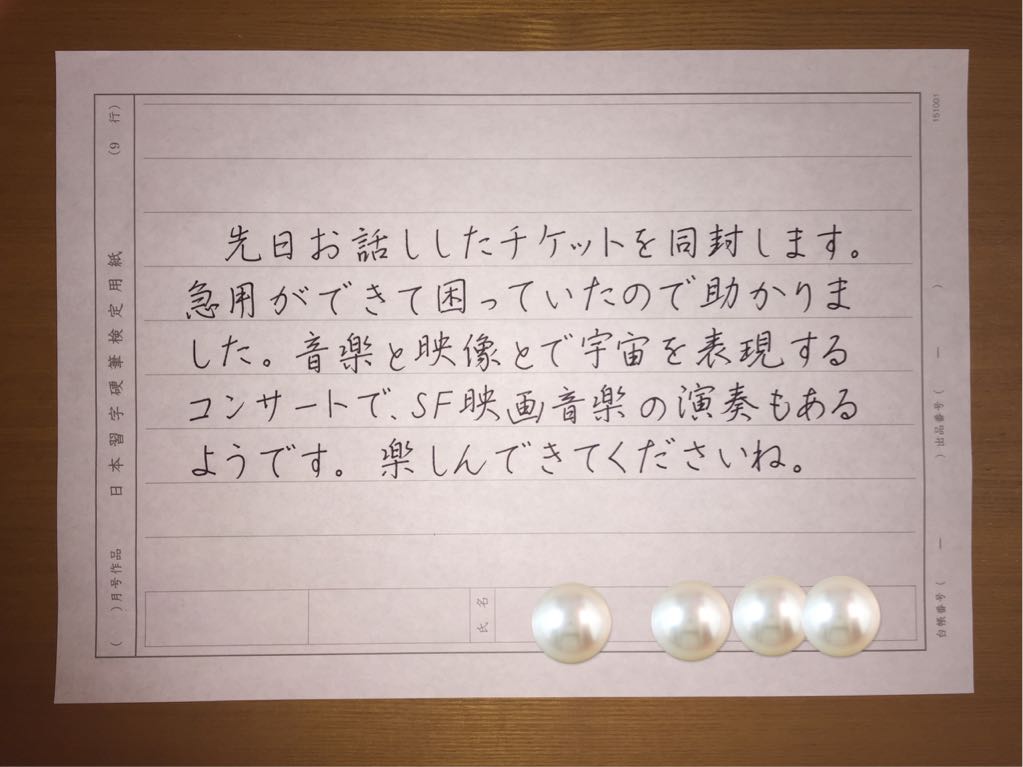 先日お話ししたチケットを同封します。
急用ができて困っていたので助かりま
した。音楽と映像とで宇宙を表現する
コンサートで、SF映画音楽の演奏もある
ようです。楽しんできてくださいね。
氏名
(　　)月号作品　日本習字硬筆検定用紙　(9 行)
151001
台帳番号(　　―　　)出品番号(　　―　　)